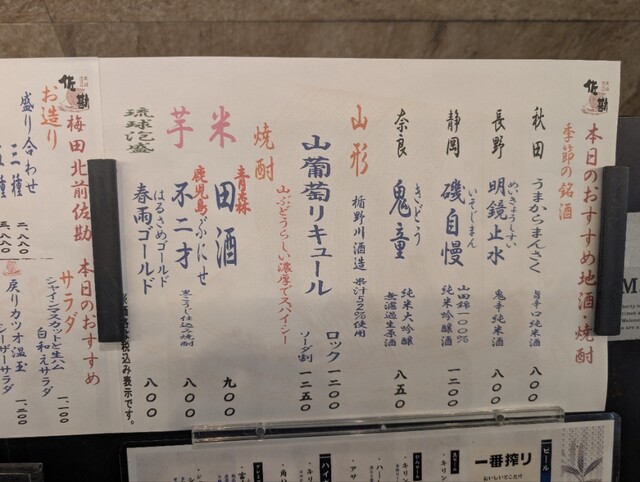 本日のおすすめ地酒・焼酎
季節の銘酒
秋田 うまからまんさく 旨辛口純米酒 八〇〇
長野 明鏡止水 めいきょうしすい 鬼辛純米酒 八〇〇
静岡 磯自慢 いそじまん 山田錦一〇〇% 純米吟醸酒 一二〇〇
奈良 鬼童 きどう 純米大吟醸 無濾過生原酒 八五〇
山形 楯野川酒造 果汁52%使用
山葡萄リキュール ロック 一二〇〇
山ぶどうらしい濃厚でスパイシー ソーダ割 一二五〇
焼酎
米 青森 田酒 九〇〇
芋 鹿児島 不二才 ぶにせ 黒こうじ仕込み焼酎 八〇〇
琉球泡盛 はるさめゴールド 春雨ゴールド 八〇〇
税込み表示です。
佐勘
梅田北前佐勘 本日のおすすめ
お造り
盛り合わせ
三種 二、八八〇
サラダ
シャインマスカットと生ハム 白和えサラダ 一、一〇〇
戻りカツオ温玉 シーザーサラダ 一、二〇〇
ビール
一番搾り
おいしいとこだけ